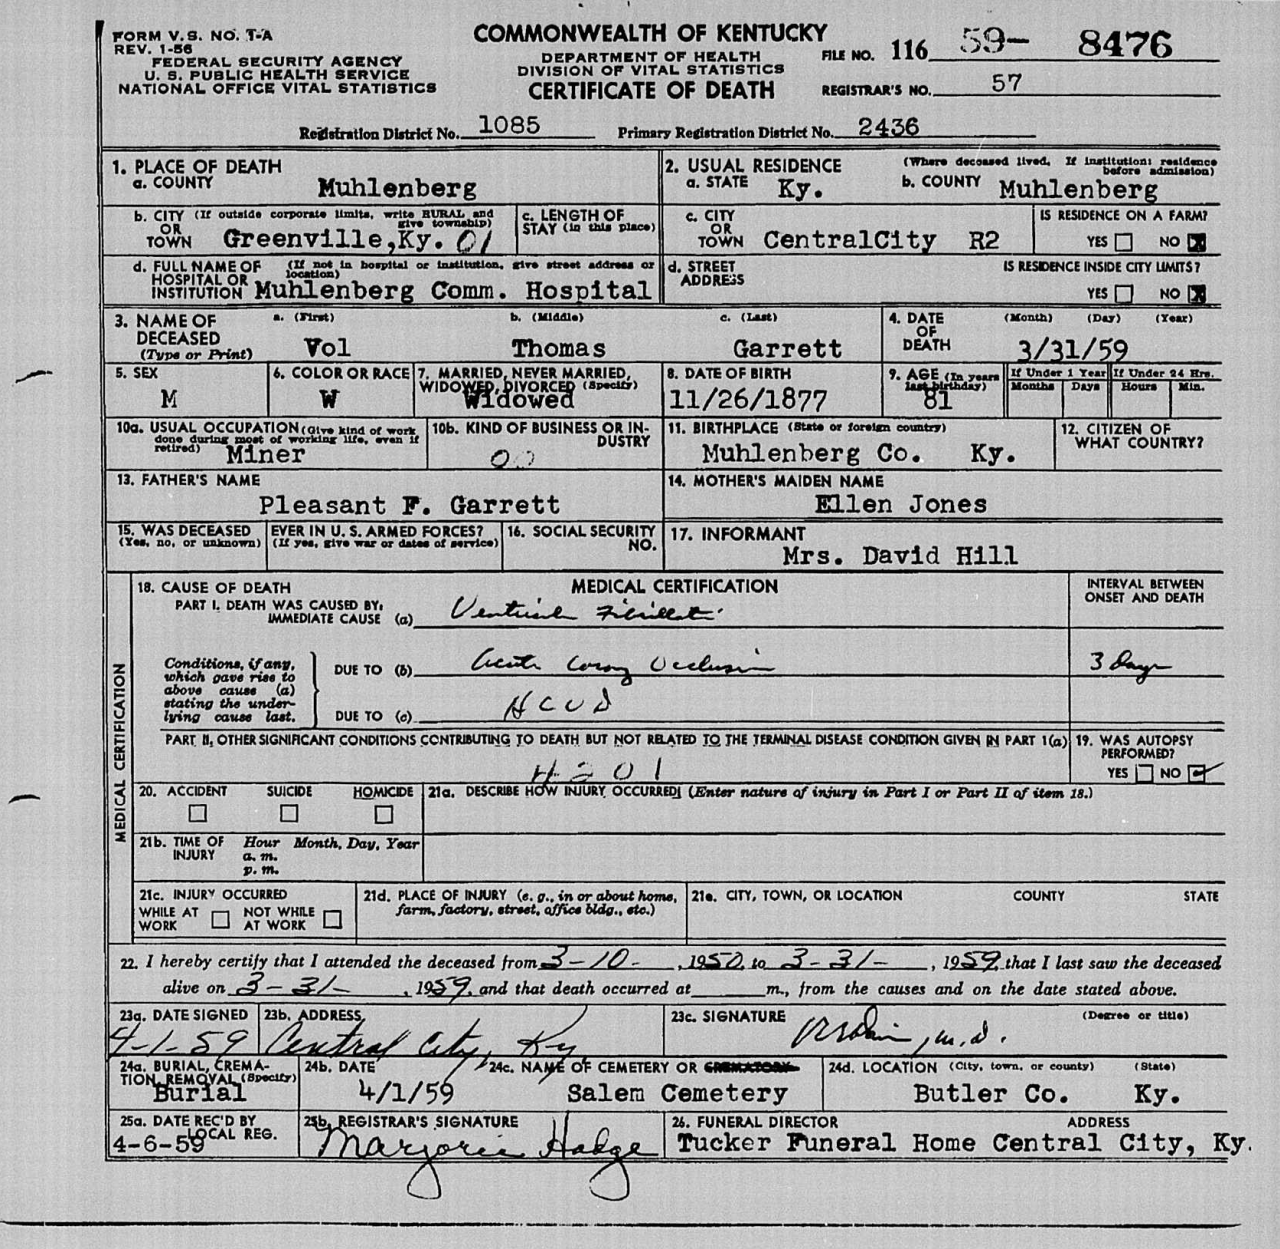 FORM V.S. NO. T-A
REV. 1-56
FEDERAL SECURITY AGENCY
U. S. PUBLIC HEALTH SERVICE
NATIONAL OFFICE VITAL STATISTICS
COMMONWEALTH OF KENTUCKY
DEPARTMENT OF HEALTH
DIVISION OF VITAL STATISTICS
CERTIFICATE OF DEATH
FILE NO. 116 59- 8476
REGISTRAR'S NO. 57
Registration District No. 1085 Primary Registration District No. 2436
1. PLACE OF DEATH
a. COUNTY Muhlenberg
2. USUAL RESIDENCE (Where deceased lived. If institution: residence before admission)
a. STATE Ky. b. COUNTY Muhlenberg
b. CITY (If outside corporate limits, write RURAL and give township)
OR
TOWN Greenville,Ky. 01
c. LENGTH OF
STAY (in this place)
c. CITY
OR
TOWN CentralCity R2
IS RESIDENCE ON A FARM?
YES NO X
d. FULL NAME OF (If not in hospital or institution, give street address or location)
HOSPITAL OR
INSTITUTION Muhlenberg Comm. Hospital
d. STREET
ADDRESS
IS RESIDENCE INSIDE CITY LIMITS?
YES NO X
3. NAME OF
DECEASED
(Type or Print)
a. (First) b. (Middle) c. (Last)
Vol Thomas Garrett
4. DATE
OF
DEATH
(Month) (Day) (Year)
3/31/59
5. SEX
M
6. COLOR OR RACE
W
7. MARRIED, NEVER MARRIED,
WIDOWED, DIVORCED (Specify)
Widowed
8. DATE OF BIRTH
11/26/1877
9. AGE (In years
last birthday)
81
If Under 1 Year If Under 24 Hrs.
Months Days Hours Min.
10a. USUAL OCCUPATION (Give kind of work
done during most of working life, even if
retired) Miner
10b. KIND OF BUSINESS OR IN-
DUSTRY
00
11. BIRTHPLACE (State or foreign country)
Muhlenberg Co. Ky.
12. CITIZEN OF
WHAT COUNTRY?
13. FATHER'S NAME
Pleasant F. Garrett
14. MOTHER'S MAIDEN NAME
Ellen Jones
15. WAS DECEASED EVER IN U. S. ARMED FORCES?
(Yes, no, or unknown) (If yes, give war or dates of service)
16. SOCIAL SECURITY
NO.
17. INFORMANT
Mrs. David Hill
MEDICAL CERTIFICATION
18. CAUSE OF DEATH MEDICAL CERTIFICATION
INTERVAL BETWEEN
ONSET AND DEATH
PART I. DEATH WAS CAUSED BY:
IMMEDIATE CAUSE (a) Ventricular Fibrillation
Conditions, if any,
which gave rise to
above cause (a)
stating the under-
lying cause last.
DUE TO (b) Acute Coronary Occlusion 3 Days
DUE TO (c) HCVD
PART II. OTHER SIGNIFICANT CONDITIONS CONTRIBUTING TO DEATH BUT NOT RELATED TO THE TERMINAL DISEASE CONDITION GIVEN IN PART 1(a)
4201
19. WAS AUTOPSY
PERFORMED?
YES NO
20. ACCIDENT SUICIDE HOMICIDE
21a. DESCRIBE HOW INJURY OCCURRED! (Enter nature of injury in Part I or Part II of item 18.)
21b. TIME OF
INJURY
Hour Month, Day, Year
a. m.
p. m.
21c. INJURY OCCURRED
WHILE AT
WORK
NOT WHILE
AT WORK
21d. PLACE OF INJURY (e. g., in or about home,
farm, factory, street, office bldg., etc.)
21e. CITY, TOWN, OR LOCATION COUNTY STATE
22. I hereby certify that I attended the deceased from 3-10-, 1950, to 3-31-, 1959, that I last saw the deceased
alive on 3-31-, 1959, and that death occurred at m., from the causes and on the date stated above.
23a. DATE SIGNED
4-1-59
23b. ADDRESS
Central City, Ky
23c. SIGNATURE (Degree or title)
M.D.
24a. BURIAL, CREMA-
TION, REMOVAL (Specify)
Burial
24b. DATE
4/1/59
24c. NAME OF CEMETERY OR CREMATORY
Salem Cemetery
24d. LOCATION (City, town, or county) (State)
Butler Co. Ky.
25a. DATE REC'D BY
LOCAL REG.
4-6-59
25b. REGISTRAR'S SIGNATURE
Marjorie Hodge
26. FUNERAL DIRECTOR ADDRESS
Tucker Funeral Home Central City, Ky.